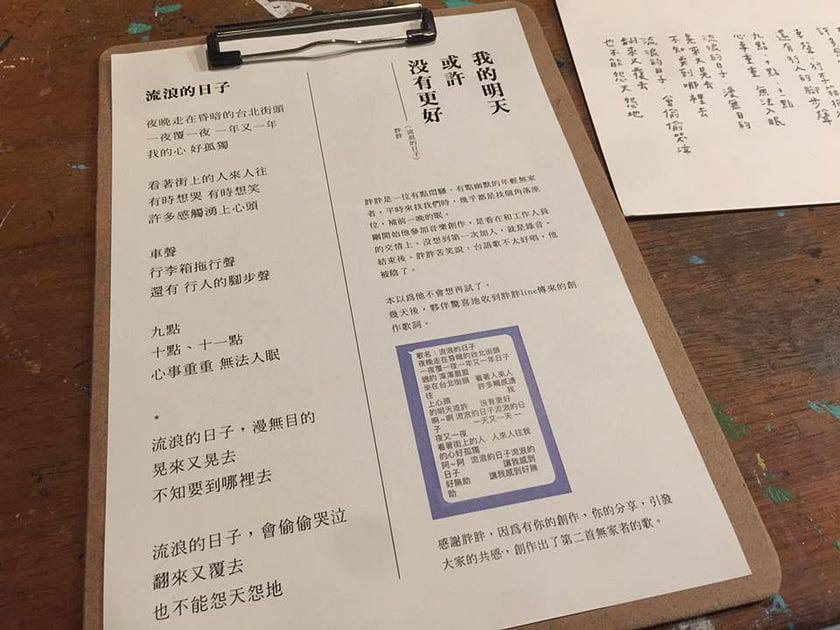 流浪的日子
夜晚走在昏暗的台北街頭
一夜覆一夜 一年又一年
我的心 好孤獨
看著街上的人來人往
有時想哭 有時想笑
許多感觸湧上心頭
車聲
行李箱拖行聲
還有 行人的腳步聲
九點
十點、十一點
心事重重 無法入眠
*
流浪的日子，漫無目的
晃來又晃去
不知要到哪裡去
流浪的日子，會偷偷哭泣
翻來又覆去
也不能怨天怨地
我的明天
或許
沒有更好
——《流浪的日子》
胖胖
胖胖是一位有點悶騷、有點幽默的年輕無家
者，平時來找我們時，幾乎都是找個角落座
位，補前一晚的眠。
剛開始他參加音樂創作，是看在和工作人員
的交情上。沒想到第一次加入，就是錄音。
結束後，胖胖苦笑說：台語歌不太好唱，他
被陰了。
本以為他不會想再試了。
幾天後，夥伴驚喜地收到胖胖line傳來的創
作歌詞。
歌名：流浪的日子
夜晚走在昏暗的台北街頭
一夜覆一夜一年又一年日子
過的 渾渾噩噩
坐在台北街頭 看著人來人
往 許多觸感湧
上心頭 我
的明天或許 沒有更好
啊~啊 流浪的日子流浪的日
子 一天又一天 一
夜又一夜
看著街上的人 人來人往我
的心好孤獨
阿~阿 流浪的日子流浪的
日子 讓我感到
好無助 讓我感到好無
助
感謝胖胖，因為有你的創作，你的分享，引發
大家的共感，創作出了第二首無家者的歌。
車聲 行李箱拖行聲
還有行人的腳步聲
九點、十點、十一點
心事重重 無法入眠
流浪的日子 漫無目的
晃來又晃去
不知要到哪裡去
流浪的日子 會偷偷哭泣
翻來又覆去
也不能怨天怨地